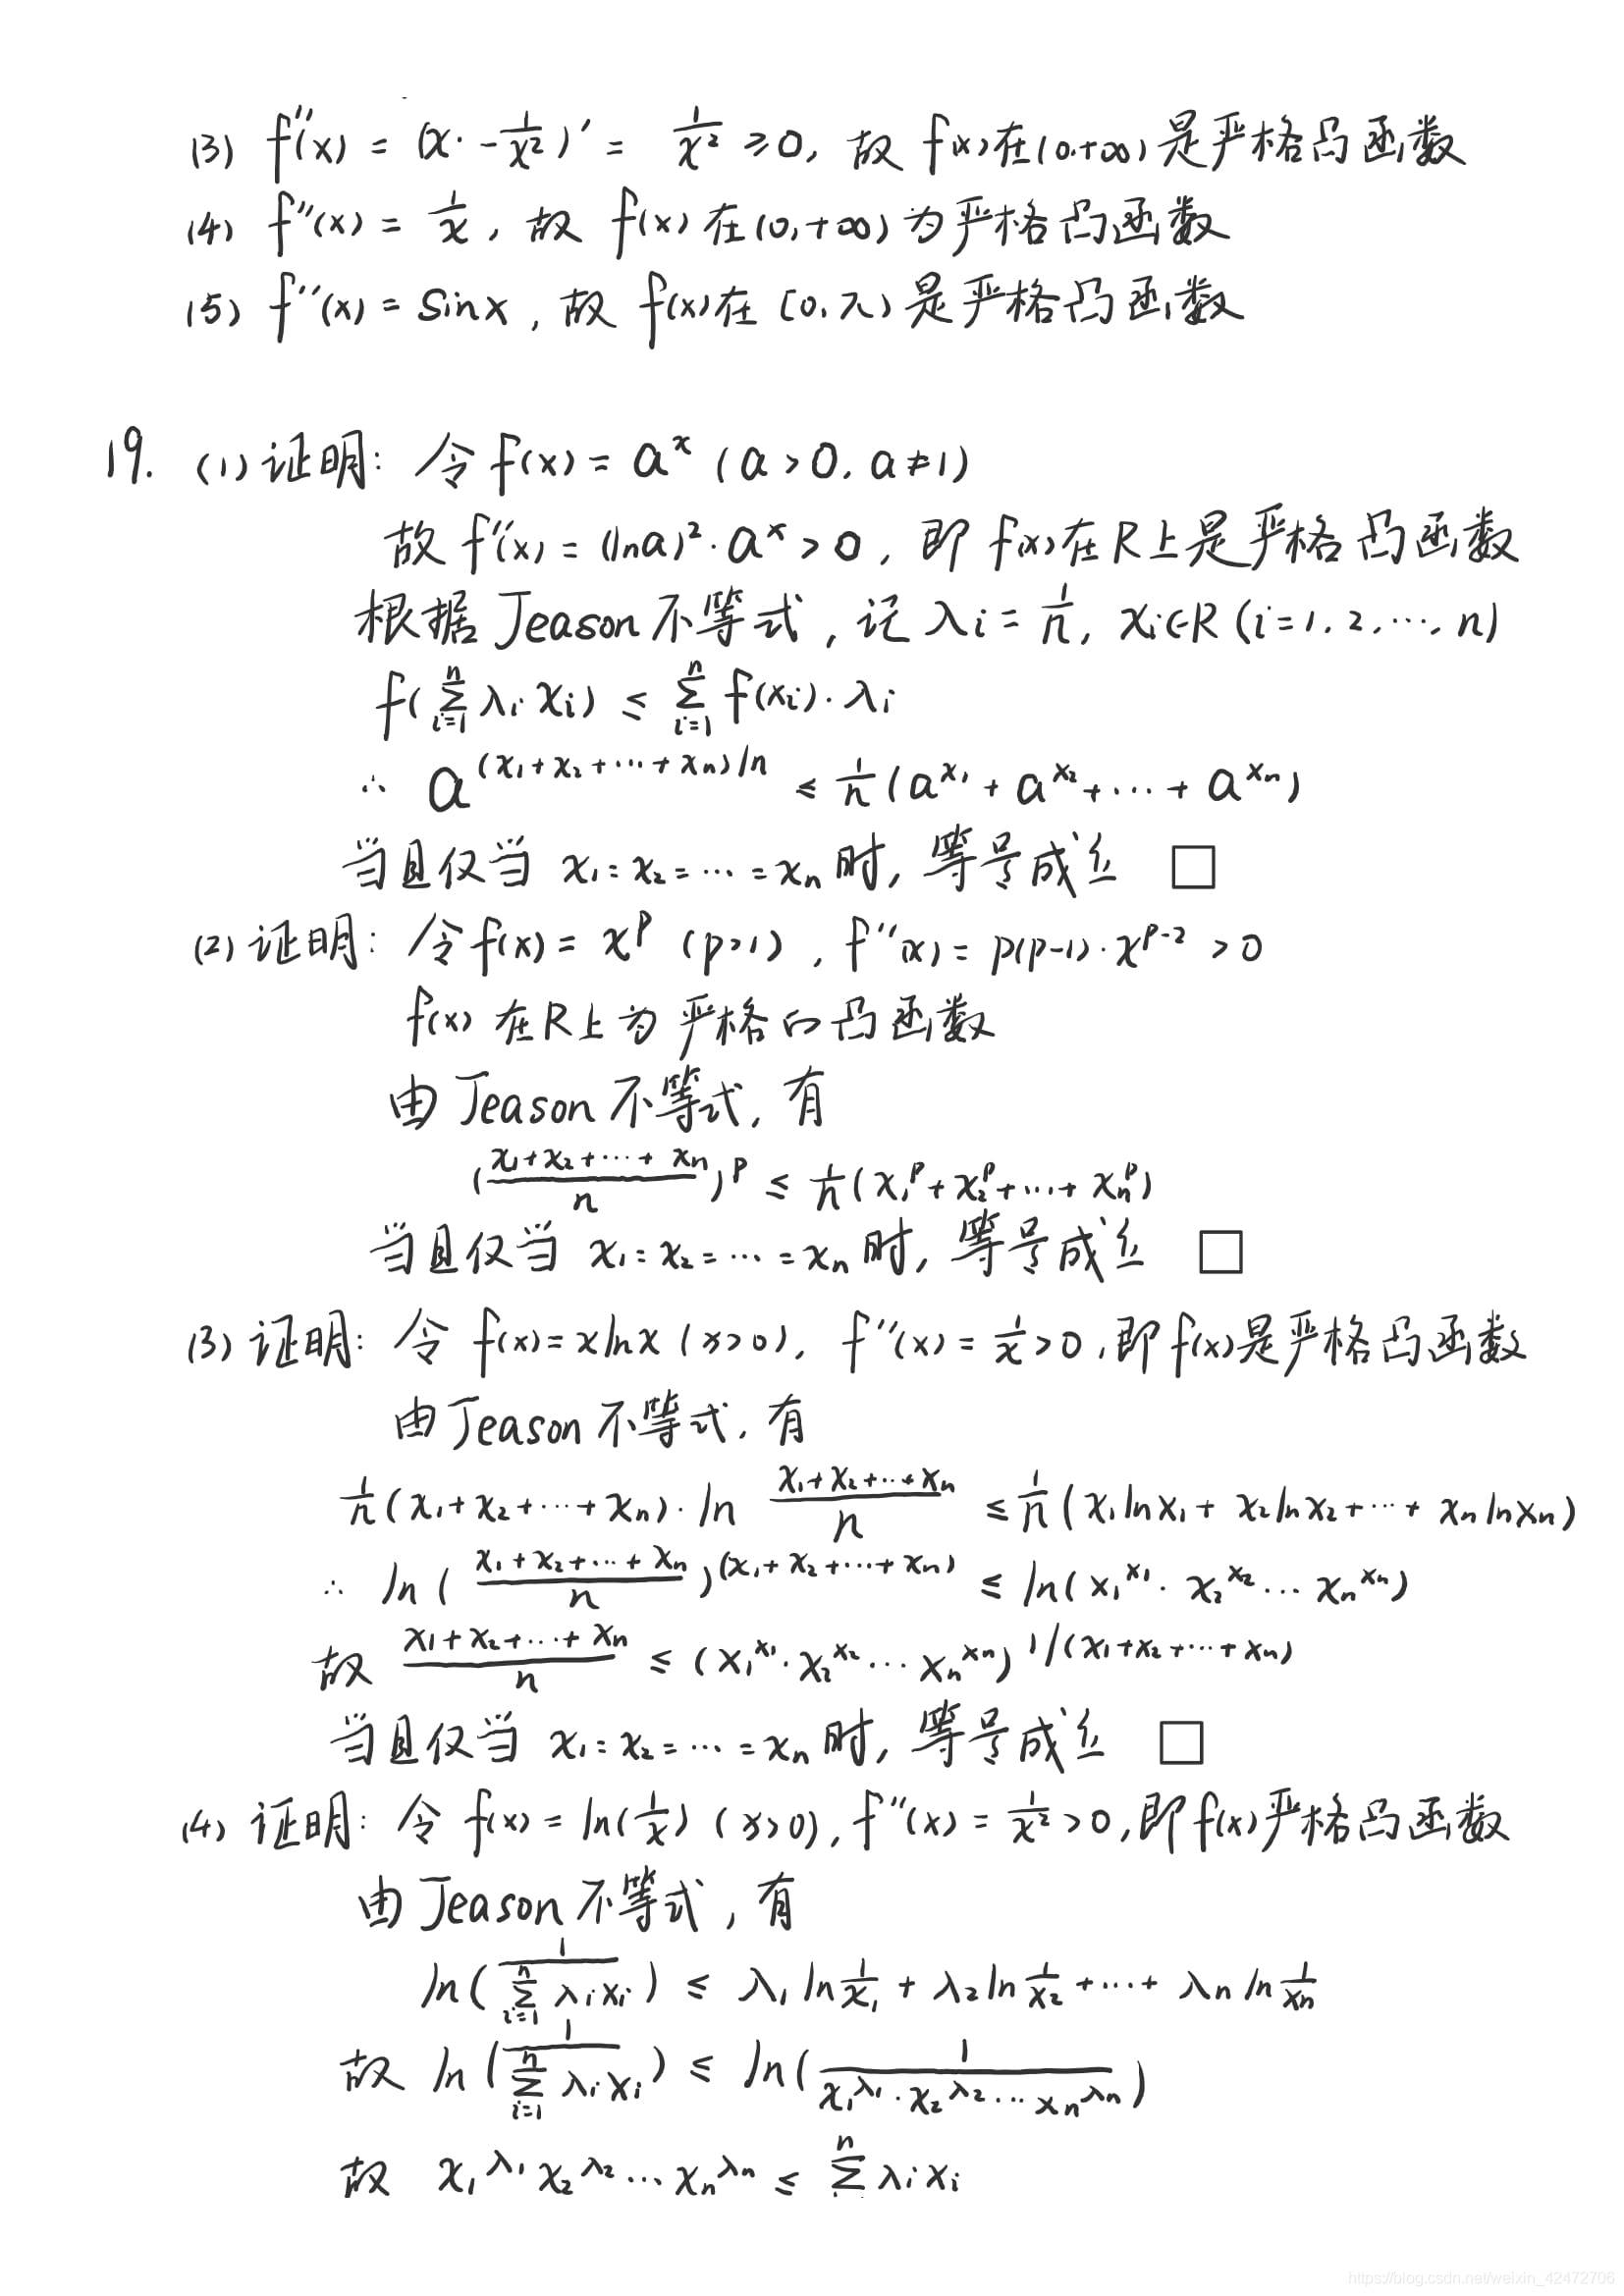 (3) f''(x) = (x·-1/x²)' = 1/x² ≥0, 故 f(x)在(0,+∞)是严格凸函数
(4) f''(x) = 1/x, 故 f(x)在(0,+∞)为严格凸函数
(5) f''(x) = Sinx, 故 f(x)在[0,π)是严格凸函数
19. (1)证明: 令f(x)=a^x (a>0, a≠1)
故f''(x)=(lna)²·a^x>0, 即f(x)在R上是严格凸函数
根据Jeason不等式, 记λi=1/n, xi∈R(i=1,2,…,n)
f(∑_{i=1}^{n} λi·xi) ≤ ∑_{i=1}^{n} f(xi)·λi
∴ a^{(x₁+x₂+…+xn)/n} ≤ 1/n(a^{x₁}+a^{x₂}+…+a^{xn})
当且仅当 x₁=x₂=…=xn时, 等号成立 □
(2)证明: 令f(x)=x^p (p>1), f''(x)=p(p-1)·x^{p-2}>0
f(x)在R上为严格的凸函数
由Jeason不等式, 有
((x₁+x₂+…+xn)/n)^p ≤ 1/n(x₁^p+x₂^p+…+xn^p)
当且仅当 x₁=x₂=…=xn时, 等号成立 □
(3)证明: 令 f(x)=xlnx (x>0), f''(x)=1/x>0, 即f(x)是严格凸函数
由Jeason不等式, 有
1/n(x₁+x₂+…+xn)·ln (x₁+x₂+…+xn)/n ≤ 1/n(x₁lnx₁+x₂lnx₂+…+xnlnxn)
∴ ln((x₁+x₂+…+xn)/n)^{(x₁+x₂+…+xn)} ≤ ln(x₁^{x₁}·x₂^{x₂}…xn^{xn})
故 (x₁+x₂+…+xn)/n ≤ (x₁^{x₁}·x₂^{x₂}…xn^{xn})^{1/(x₁+x₂+…+xn)}
当且仅当 x₁=x₂=…=xn时, 等号成立 □
(4)证明: 令 f(x)=ln(1/x) (x>0), f''(x)=1/x²>0, 即f(x)严格凸函数
由Jeason不等式, 有
ln(1/∑_{i=1}^{n} λixi) ≤ λ₁ln1/x₁+λ₂ln1/x₂+…+λnln1/xn
故 ln(1/∑_{i=1}^{n} λixi) ≤ ln(1/(x₁^{λ₁}·x₂^{λ₂}…xn^{λn}))
故 x₁^{λ₁}x₂^{λ₂}…xn^{λn} ≤ ∑^{n} λixi
https://blog.csdn.net/weixin_42472706